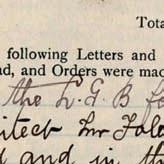 Tota
following Letters and
d, and Orders were mad
the L. G. B f
itect Mr
d and in th